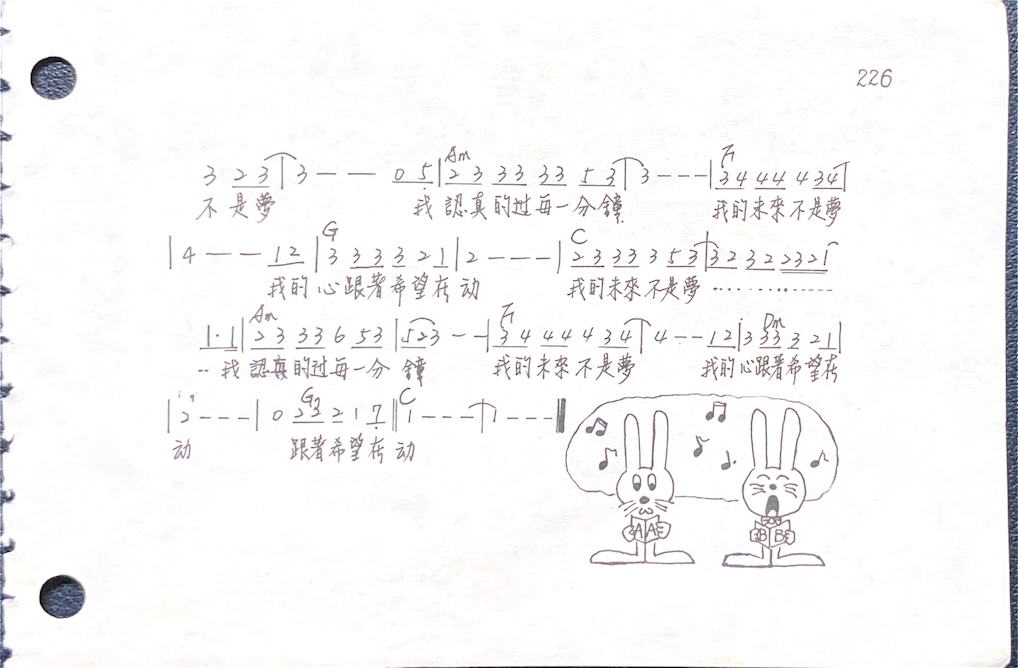 226
3 2 3 | 3 - - - 0 5 | Am 2 3 3 3 3 3 5 3 | 3 - - - | F 3 4 4 4 4 3 4 |
不是夢 我 認真的过每一分鐘 我的未來不是夢
| 4 - - 1 2 | G 3 3 3 3 2 1 | 2 - - - | C 2 3 3 3 3 5 3 | 3 2 3 2 2 3 2 1
我的心跟著希望在动 我的未來不是夢
1 · 1 | Am 2 3 3 3 6 5 3 | 5 2 3 - - | F 3 4 4 4 4 3 4 | 4 - - 1 2 | 3 Dm 3 3 3 2 1 |
我 認真的过每一分鐘 我的未來不是夢 我的心跟著希望在
| 2 - - - | 0 G 2 2 1 7 || C 1 - - - | 1 - - - ||
动 跟著希望在动
A A B B